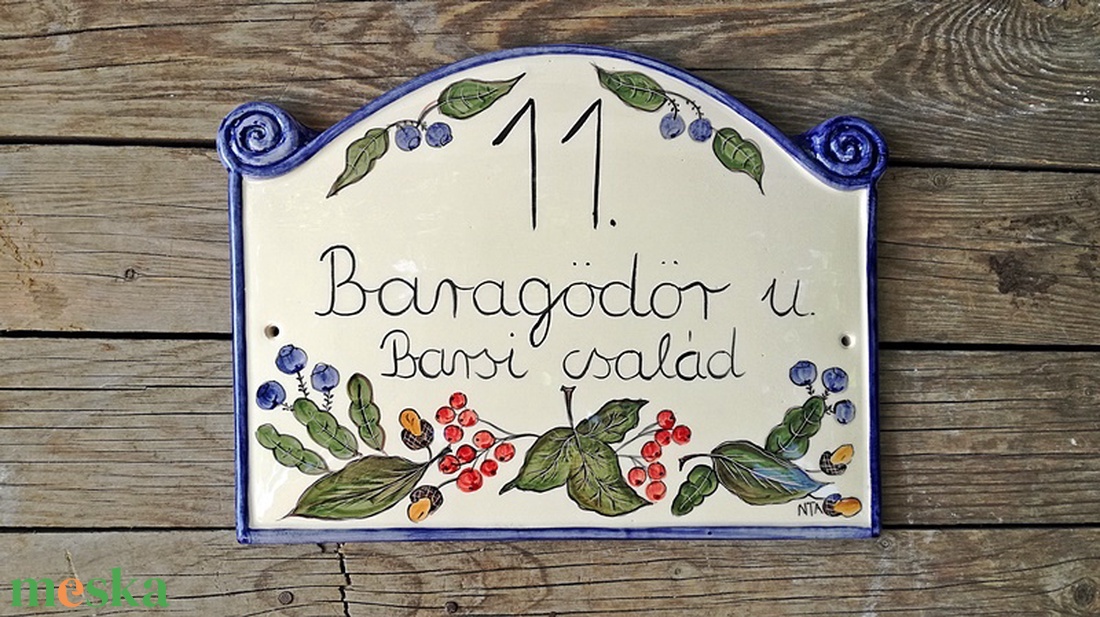 11.
Baragödör u.
Barsi család
NTA
meska